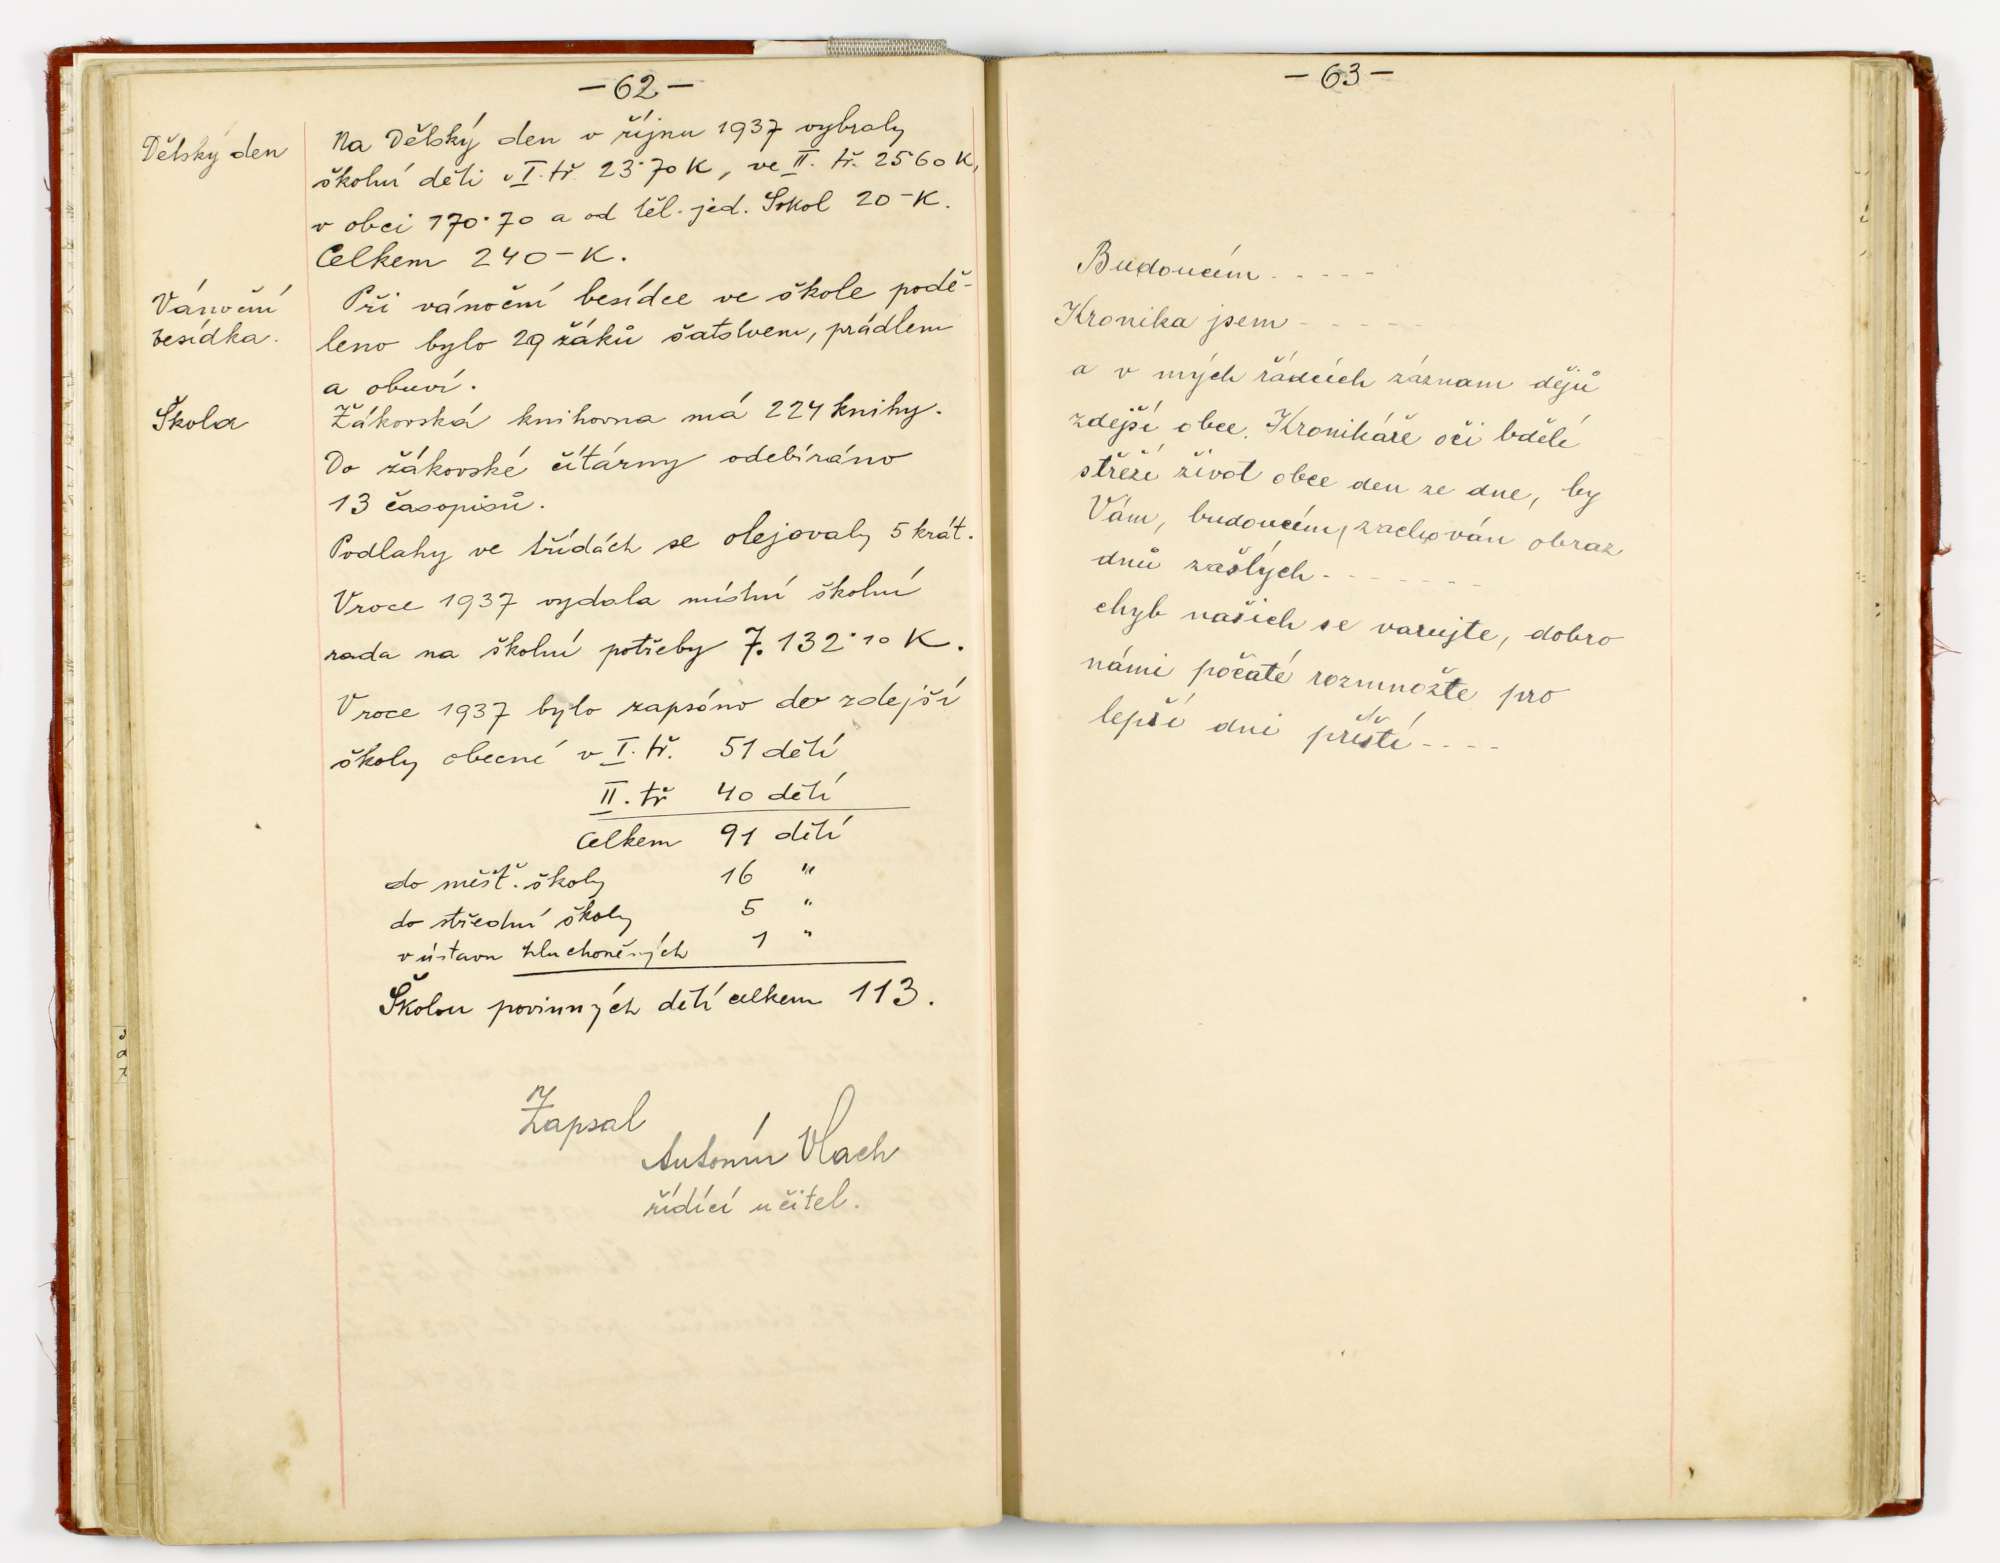 — 62 —
Dětský den
Na Dětský den v říjnu 1937 vybraly
školní děti v I. tř. 23·70 K, ve II. tř. 25 60 K,
v obci 170·70 a od těl. jed. Sokol 20 – K.
Celkem 240 – K.
Vánoční
besídka.
Při vánoční besídce ve škole podě-
leno bylo 29 žáků šatstvem, prádlem
a obuví.
Škola
Žákovská knihovna má 224 knihy.
Do žákovské čítárny odebíráno
13 časopisů.
Podlahy ve třídách se olejovaly 5 krát.
V roce 1937 vydala místní školní
rada na školní potřeby 7.132·10 K.
V roce 1937 bylo zapsáno do zdejší
školy obecné v I. tř. 51 dětí
II. tř 40 dětí
Celkem 91 dětí
do měšť. školy 16 "
do střední školy 5 "
v ústavu hluchoněmých 1 "
Školou povinných dětí celkem 113.
Zapsal
Antonín Vlach
řídící učitel.
— 63 —
Budoucím - - - - -
Kronika jsem - - - - -
a v mých řádcích záznam dějů
zdejší obce. Kronikáře oči bdělé
střeží život obce den ze dne, by
Vám, budoucím, zachován obraz
dnů zašlých - - - - - - -
chyb našich se varujte, dobro
námi počaté rozmnožte pro
lepší dni příští - - - -